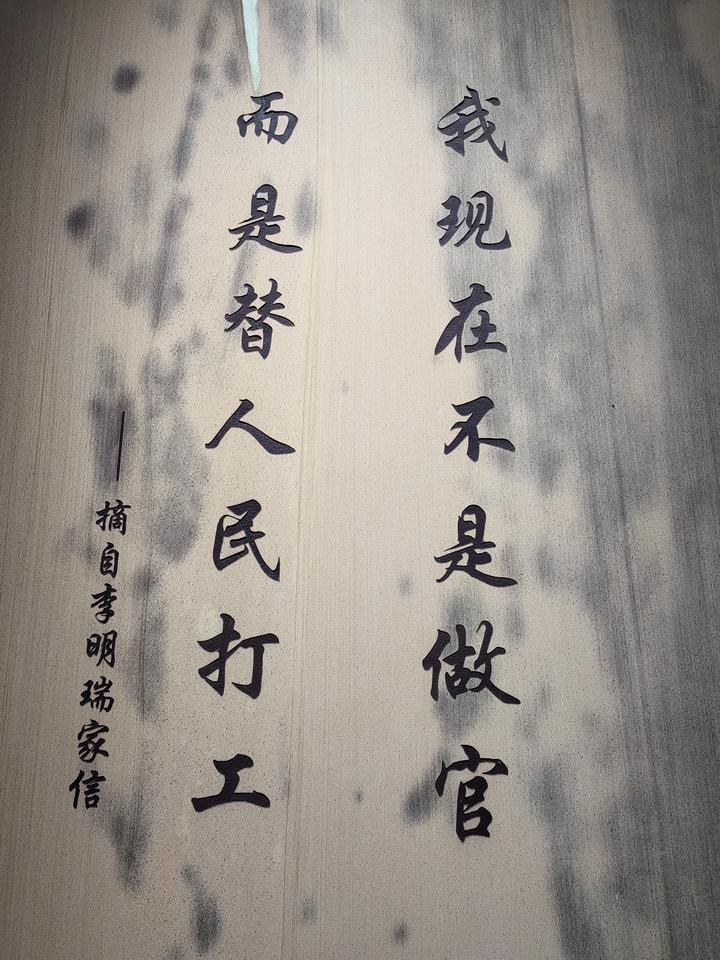 我现在不是做官
而是替人民打工
——摘自李明瑞家信